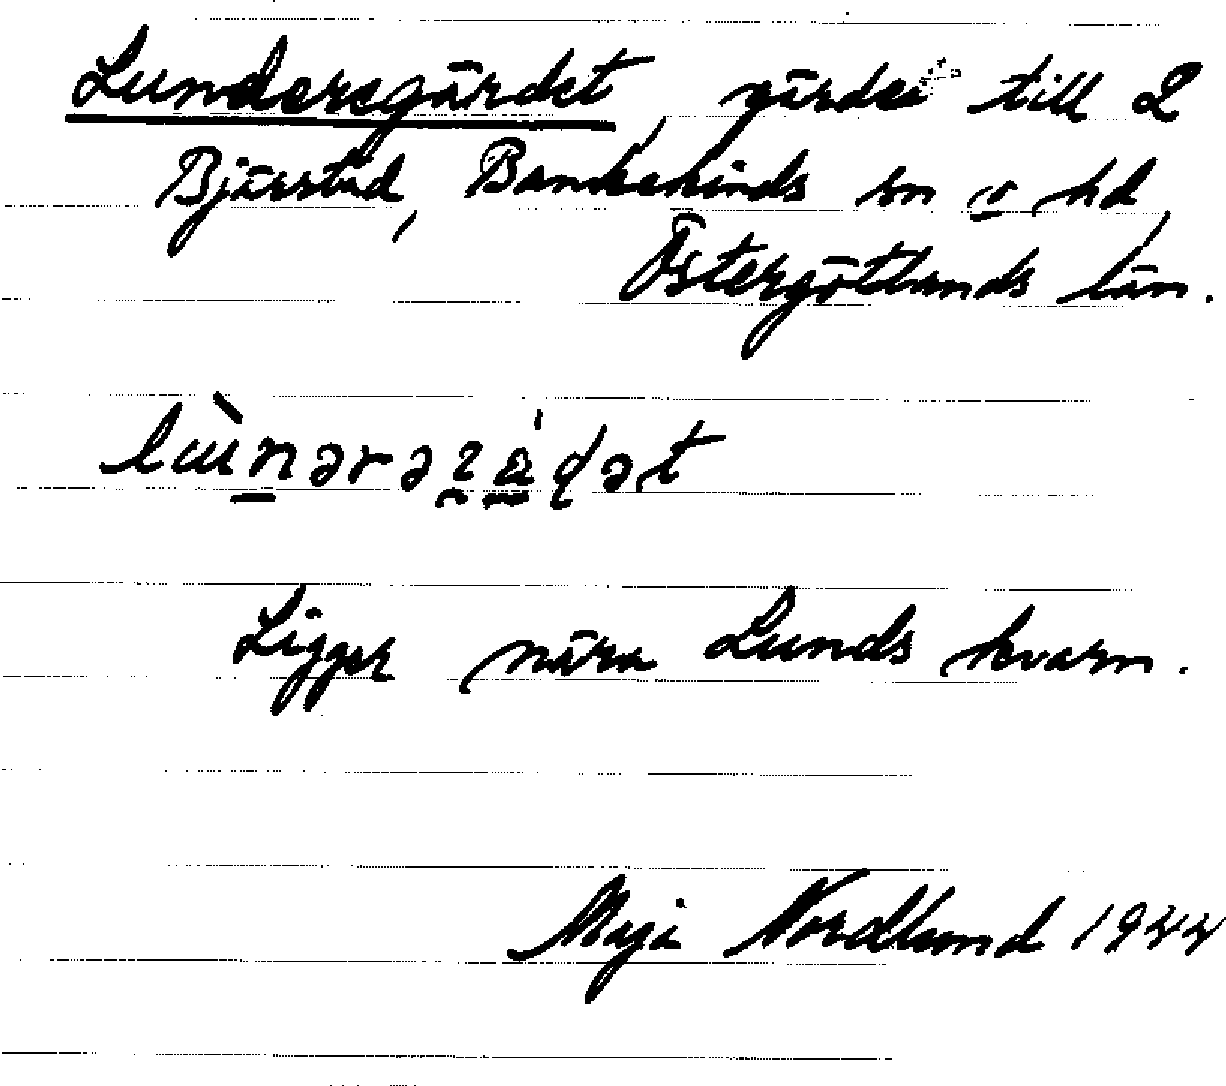 Lundersgärdet, gärde till 2
Bjärstad, Bankekinds sn o hd,
Östergötlands län.
Ligger nära Lunds kvarn.
Maja Nordlund 1944